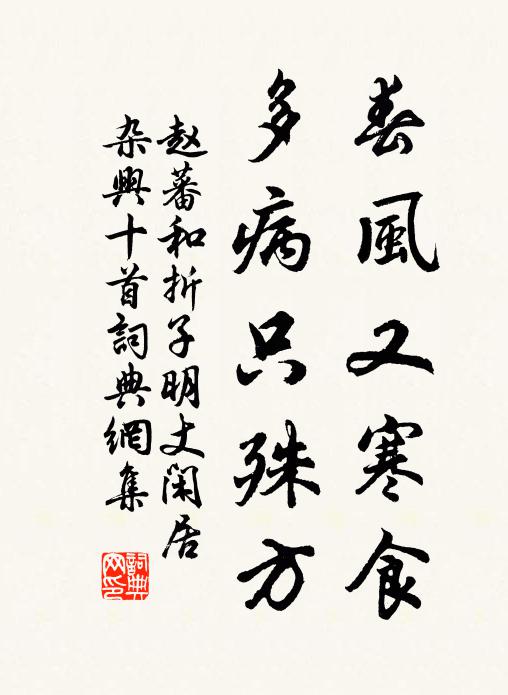 春風又寒食
多病只殊方
赵蕃和折子明丈闲居
杂興十首詞典網集
詞典网印